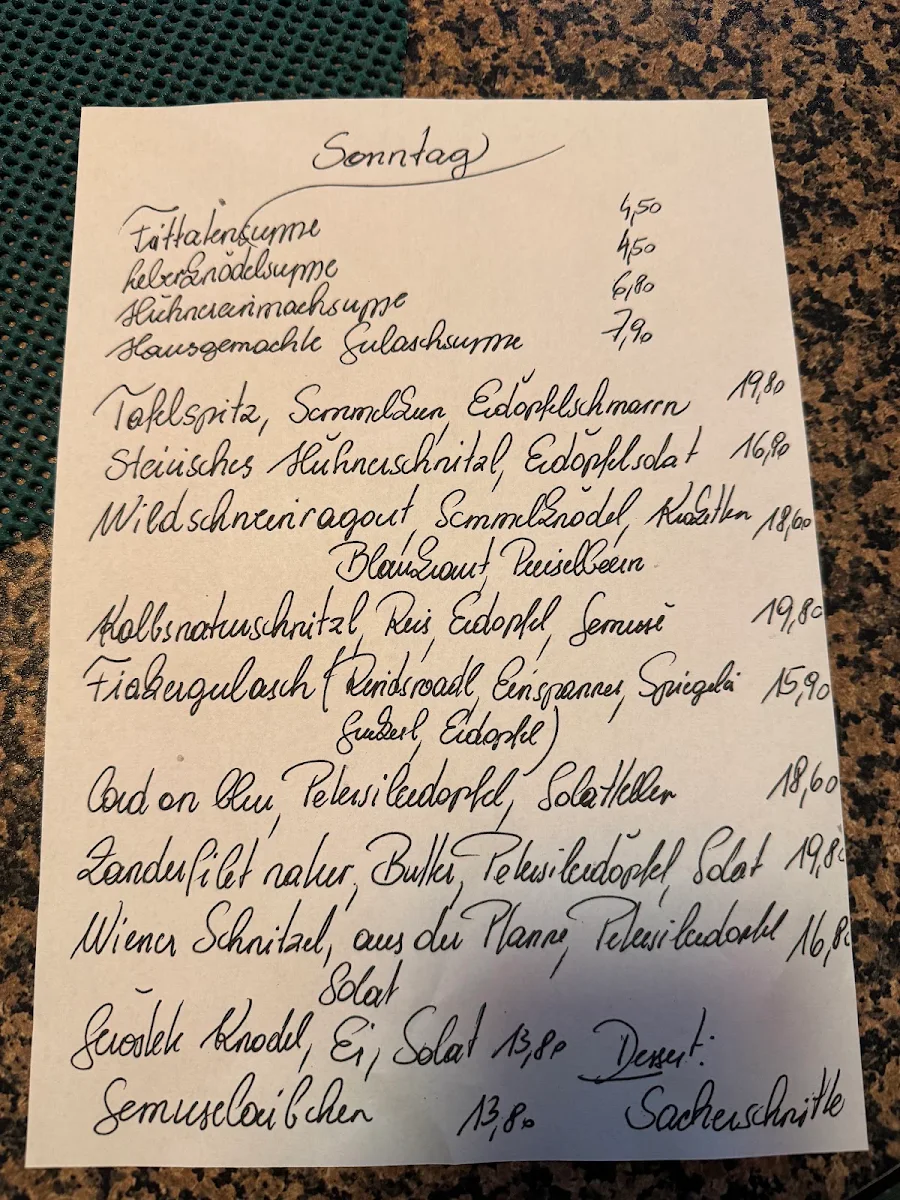 Sonntag
Frittatensuppe 4,50
Leberknödelsuppe 4,50
Hühnereinmachsuppe 6,80
Hausgemachte Gulaschsuppe 7,90
Tafelspitz, Semmelkren, Erdöpfelschmarrn 19,80
Steirisches Hühnerschnitzl, Erdöpfelsalat 16,90
Wildschweinragout, Semmelknödel, Kroketten 18,60
Blaukraut, Preiselbeern
Kalbsnaturschnitzl, Reis, Erdopfel, Gemüse 19,80
Fiakergulasch (Rindswadl, Einspänner, Spiegelei 15,90
Gurkerl, Erdopfel)
Cord on bleu, Petersilerdopfel, Salatteller 18,60
Zanderfilet natur, Butter, Petersilerdöpfel, Salat 19,80
Wiener Schnitzel, aus der Pfanne, Petersilerdopfel 16,80
Salat
Geröstete Knödel, Ei, Salat 13,80 Dessert:
Gemüselaibchen 13,80 Sacherschnitte